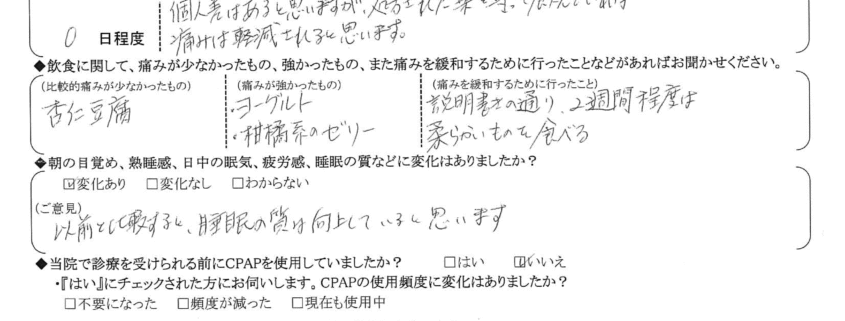 個人差はあると思いますが、処方された薬を
0 日程度 痛みは軽減されると思います。
◆飲食に関して、痛みが少なかったもの、強かったもの、また痛みを緩和するために行ったことなどがあればお聞かせください。
(比較的痛みが少なかったもの) (痛みが強かったもの) (痛みを緩和するために行ったこと)
杏仁豆腐 ・ヨーグルト 説明書きの通り、2週間程度は
・柑橘系のゼリー 柔らかいものを食べる
◆朝の目覚め、熟睡感、日中の眠気、疲労感、睡眠の質などに変化はありましたか？
☑変化あり □変化なし □わからない
(ご意見)
以前と比較すると、睡眠の質は向上していると思います
◆当院で診療を受けられる前にCPAPを使用していましたか？ □はい ☑いいえ
・『はい』にチェックされた方にお伺いします。CPAPの使用頻度に変化はありましたか？
□不要になった □頻度が減った □現在も使用中